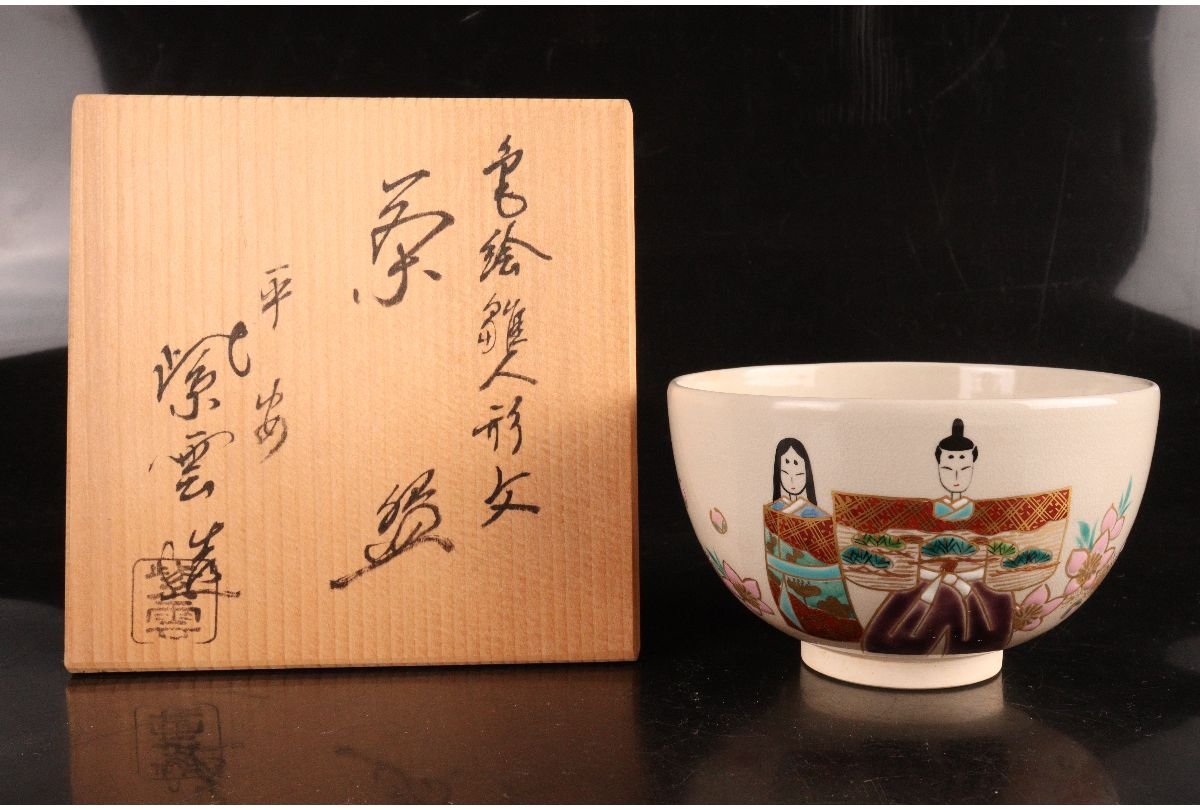 色絵雛人形文
茶盌
平安
紫雲造
紫雲